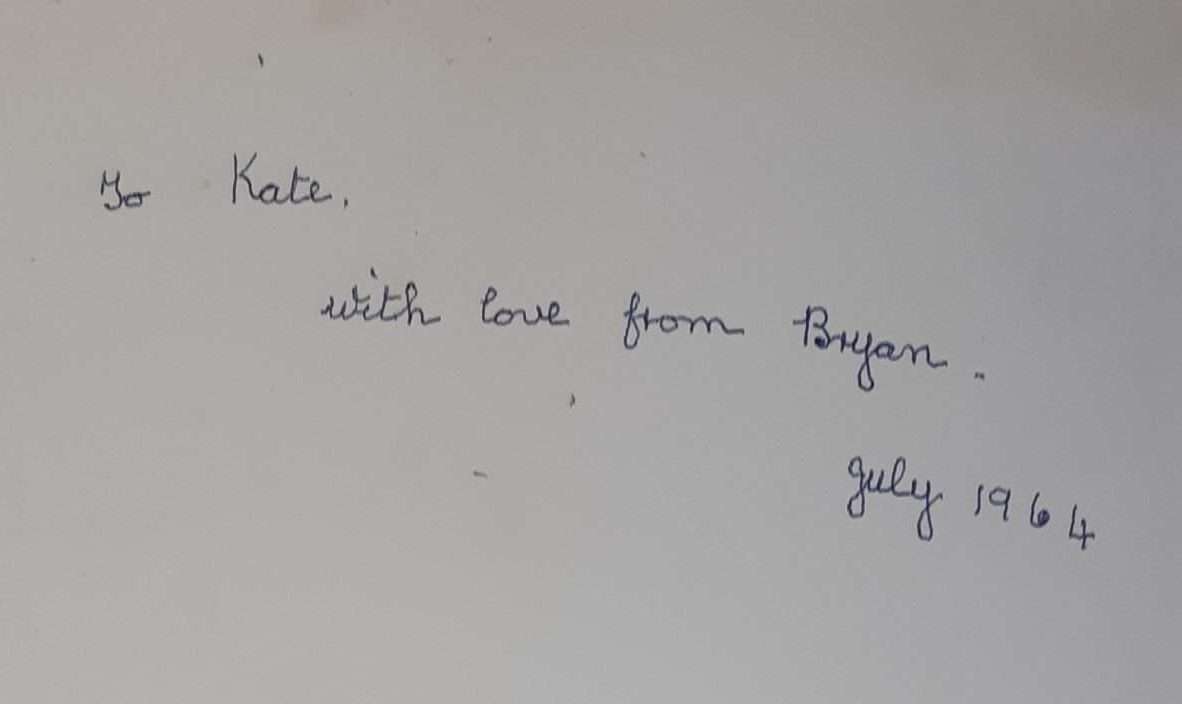 To Kate,
with love from Bryan.
July 1964